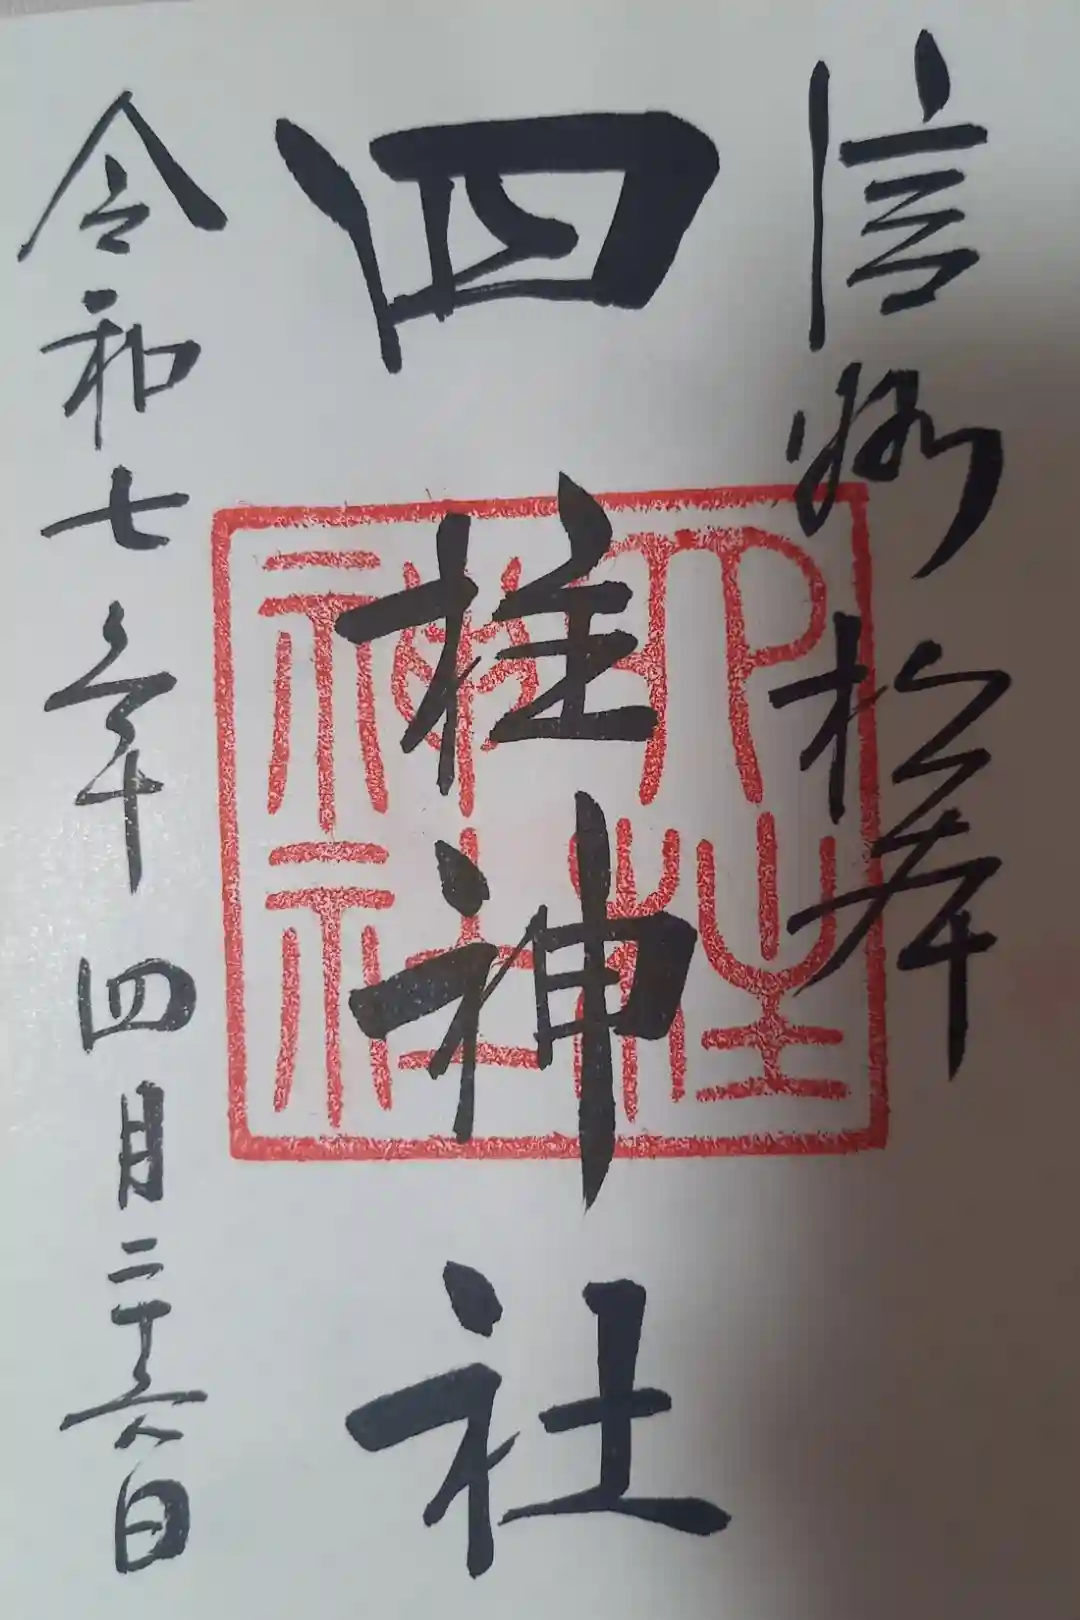 信州松本
四柱神社
四柱神社
令和七年四月二十六日